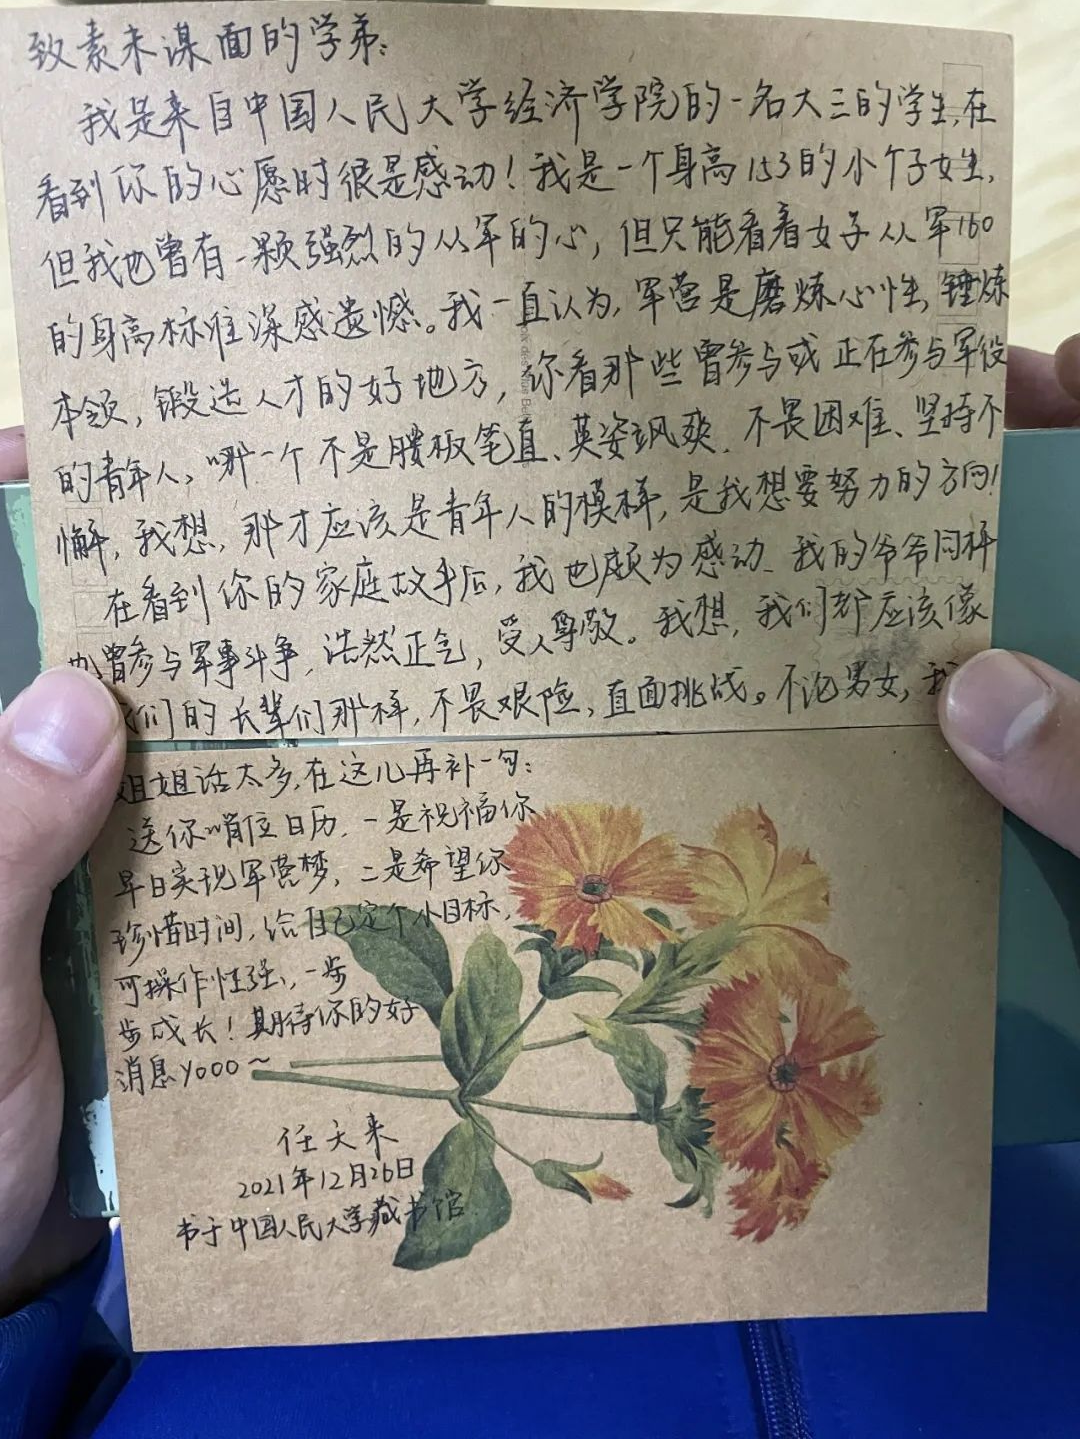 致素未谋面的学弟:
我是来自中国人民大学经济学院的一名大三的学生,在
看到你的心愿时很是感动!我是一个身高153的小个子女生,
但我也曾有一颗强烈的从军的心,但只能看着女子从军160
的身高标准深感遗憾。我一直认为,军营是磨炼心性,锤炼
本领,锻造人才的好地方,你看那些曾参与或正在参与军役
的青年人,哪一个不是腰板笔直、英姿飒爽、不畏困难、坚持不
懈,我想,那才应该是青年人的模样,是我想要努力的方向!
在看到你的家庭故事后,我也颇为感动、我的爷爷同样
也曾参与军事斗争,浩然正气,受人尊敬。我想,我们都应该像
我们的长辈们那样,不畏艰险,直面挑战。不论男女,我
姐姐话太多,在这儿再补一句:
送你哨位日历,一是祝福你
早日实现军营梦,二是希望你
珍惜时间,给自己定个小目标,
可操作性强,一步
步成长!期待你的好
消息yooo~
任天来
2021年12月26日
书于中国人民大学藏书馆